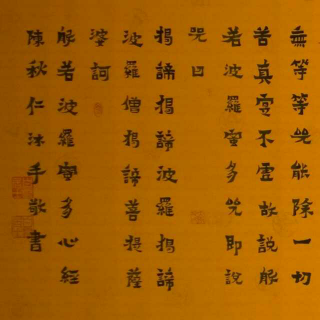 無等等咒能除一切
苦真實不虛故說般
若波羅蜜多咒即說
咒曰
揭諦揭諦波羅揭諦
波羅僧揭諦菩提薩
婆訶
般若波羅蜜多心經
陳秋仁沐手敬書